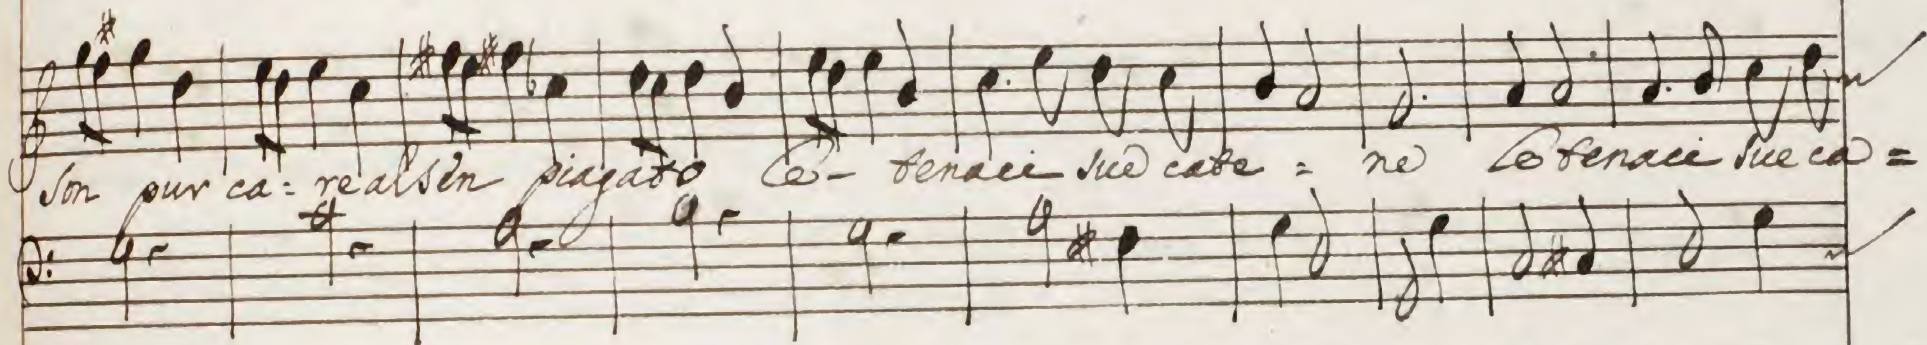 son pur ca = re al sen piagato Le - tenaci sue cate = ne Le tenaci sue ca =